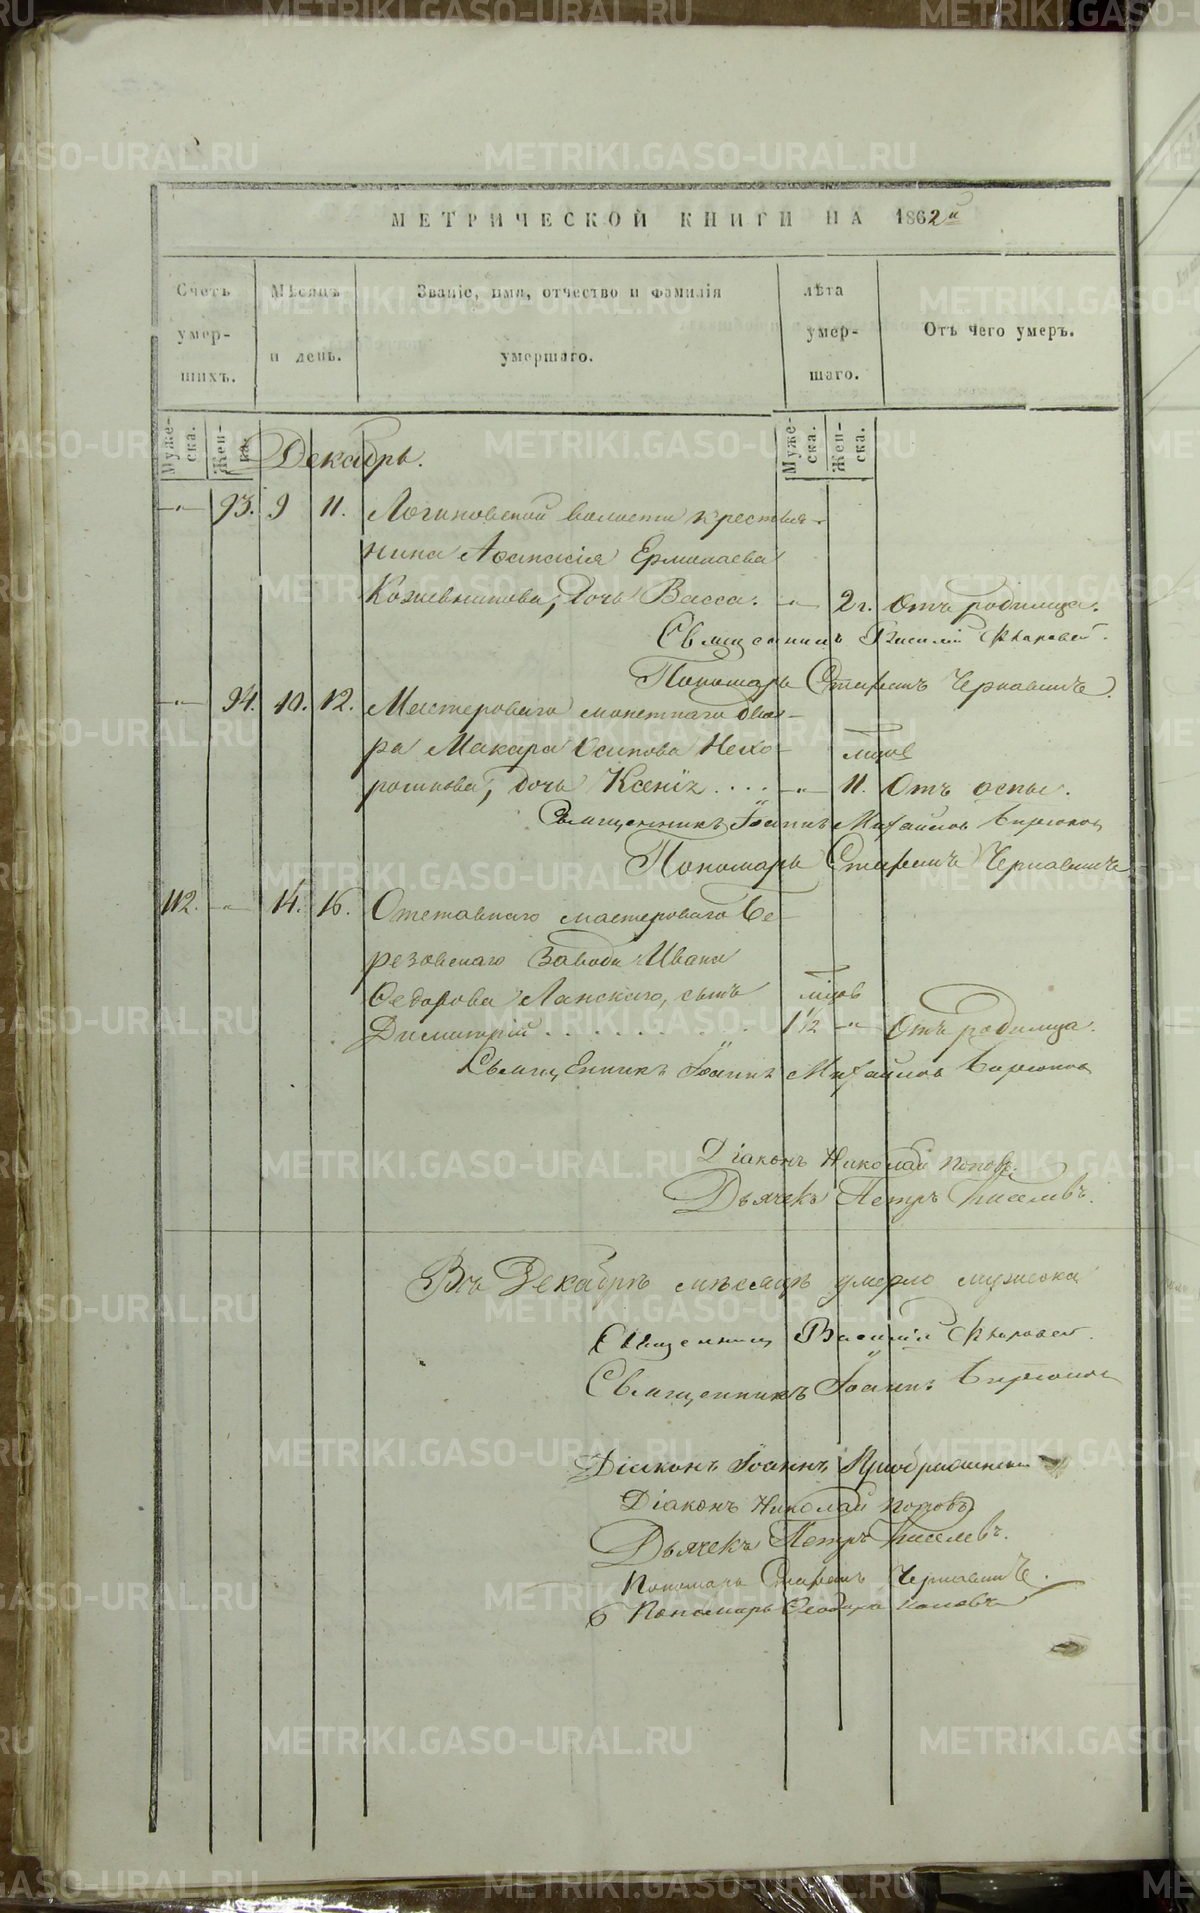 МЕТРИЧЕСКОЙ КНИГИ НА 1862й
Счетъ умер-шихъ.
Мѣсяцъ и день.
Званіе, имя, отчество и фамилія умершаго.
лѣта умер-шаго.
Отъ чего умеръ.
Муже-ска.
Жен-ка.
Муже-ска.
Жен-ска.
Декабрь.
-"- 93. 9 11. Логиновской волости крестья-
нина Аѳанасія Ермолаева
Кожевникова, дочь Васса. -"- 2 г. Отъ родимца.
Священникъ Василій
Пономарь Стефанъ Чернавинъ.
-"- 94. 10. 12. Мастероваго монетнаго дво-
ра Макара Осипова Нехо- мцов
рошкова, дочь Ксенія.... -"- 11. Отъ оспы.
Священникъ Іоаннъ Михайлов Бирюков
Пономарь Стефанъ Чернавинъ
112. -"- 14. 16. Отставнаго мастероваго Бе-
резовскаго Завода Ивана
Ѳедорова Ланскаго, сынъ мцов
Димитрій......... 1½ -"- Отъ родимца.
Священникъ Іоаннъ Михайлов Бирюков
Діаконъ Николай Поповъ.
Дьячекъ Петръ Киселевъ.
Въ Декабрѣ мѣсяцѣ умерло мужеска
Священникъ Василій
Священникъ Іоаннъ Бирюков
Діаконъ Іоаннъ
Діаконъ Николай Поповъ
Дьячекъ Петръ Киселевъ.
Пономарь Стефанъ Чернавинъ.
Пономарь Поповъ
METRIKI.GASO-URAL.RU